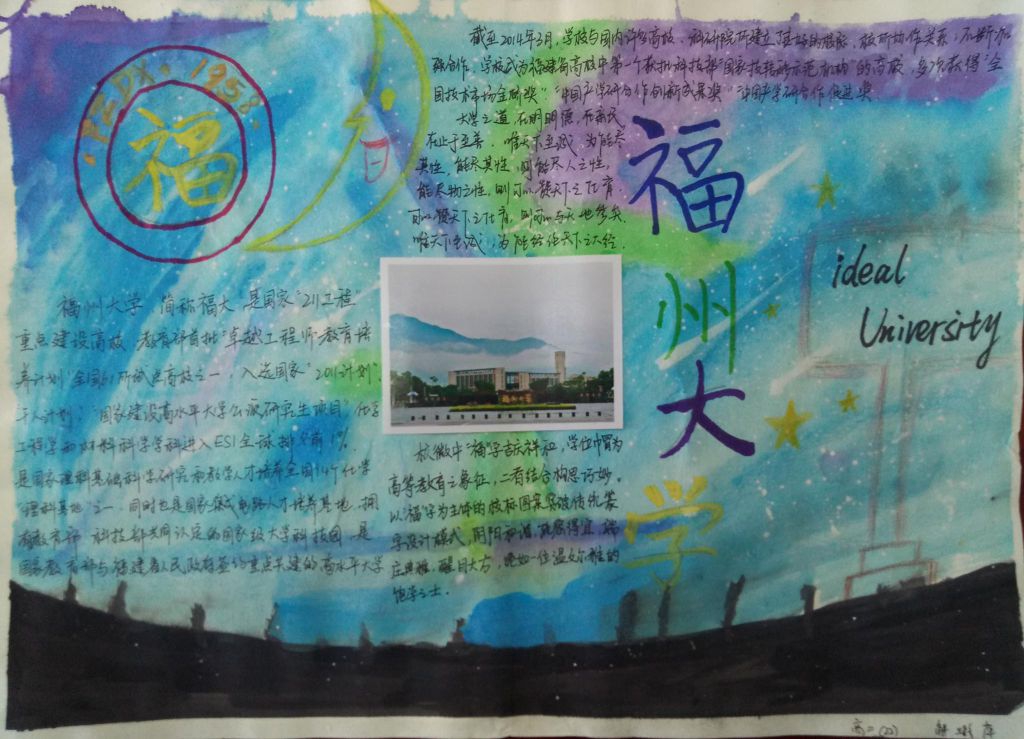 截至2014年3月,学校与国内许多高校、科研院所建立了良好的 校所协作关系,不断加
强合作。学校成为福建省高校中第一个获批科技部"国家技术转移示范机构"的高校,多次获得"全
国技术市场金桥奖""中国产学研合作创新成果奖""中国产学研合作促进奖
FZDX·1958
福
大学之道,在明明德,在亲民
在止于至善。唯天下至诚,为能尽
其性,能尽其性,则能尽人之性,
能尽物之性,则可以赞天下之化育.
可以赞天下之化育,则可以与天地参矣
唯天下至诚,为能经纶天下之大经.
福州大学
ideal
University
福州大学,简称福大,是国家"211工程"
重点建设高校,教育部首批"卓越工程师教育培
养计划"全国61所试点高校之一,入选国家"2011计划"、
千人计划、"国家建设高水平大学公派研究生项目"化学
工程学和材料科学学科进入ESI全球排名前1%
是国家理科基础科学研究和教学人才培养全国14个化学
理科基地之一,同时也是国家集成电路人才培养基地,拥
有教育部 科技部共同认定的国家级大学科技园,是
国家教育部与福建省人民政府签约重点共建的高水平大学
校徽中"福"字吉庆祥和,学位帽为
高等教育之象征,二者结合构思巧妙。
以"福"字为主体的校标图案突破传统篆
字设计模式,阴阳和谐,疏密得宜,端
庄典雅,醒目大方,宛如一位温文尔雅的
饱学之士.
高二(22)